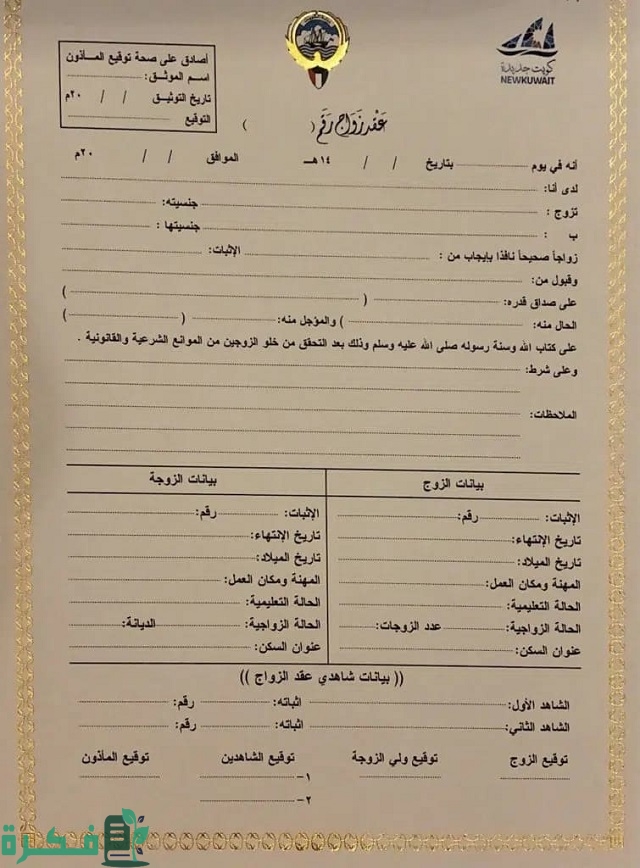 كويت جديدة
NEWKUWAIT
أصادق على صحة توقيع المـأذون
اسـم الموثـق :
تاريخ التوثيـق / / ٢٠م
التوقيع
عقد زواج رقم ( )
أنه في يوم بتاريخ / / ١٤هـ الموافق / / ٢٠م
لدى أنا:
تزوج : جنسيته:
ب : جنسيتها :
زواجاً صحيحاً نافذا بإيجاب من : الإثبات:
وقبول من:
على صداق قدره: ( )
الحال منه: ) والمؤجل منه: ( )
على كتاب الله وسنة رسوله صلى الله عليه وسلم وذلك بعد التحقق من خلو الزوجين من الموانع الشرعية والقانونية .
وعلى شرط:
الملاحظات:
بيانات الزوج
الإثبات: رقم:
تاريخ الإنتهاء:
تاريخ الميلاد:
المهنة ومكان العمل:
الحالة التعليمية:
الحالة الزواجية: عدد الزوجات:
عنوان السكن:
بيانات الزوجة
الإثبات: رقم:
تاريخ الإنتهاء:
تاريخ الميلاد:
المهنة ومكان العمل:
الحالة التعليمية:
الحالة الزواجية: الديانة:
عنوان السكن:
(( بيانات شاهدي عقد الزواج ))
الشاهد الأول: اثباته: رقم:
الشاهد الثاني: اثباته: رقم:
توقيع الزوج توقيع ولي الزوجة توقيع الشاهدين توقيع المأذون
١-
٢-
فكرة